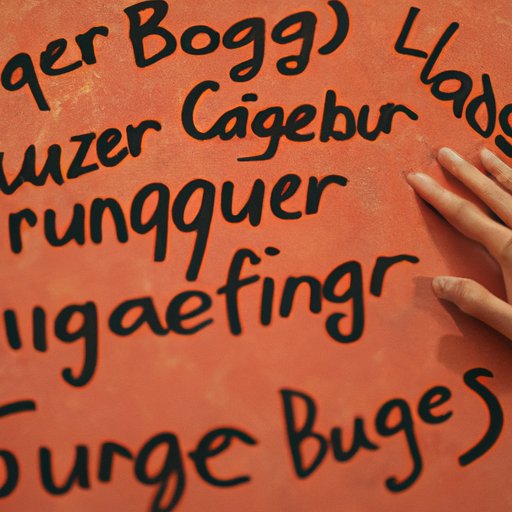 ger Bogg)
Lads
uuzer Cagebur
runqquer
iigaefingr
Surge Buges